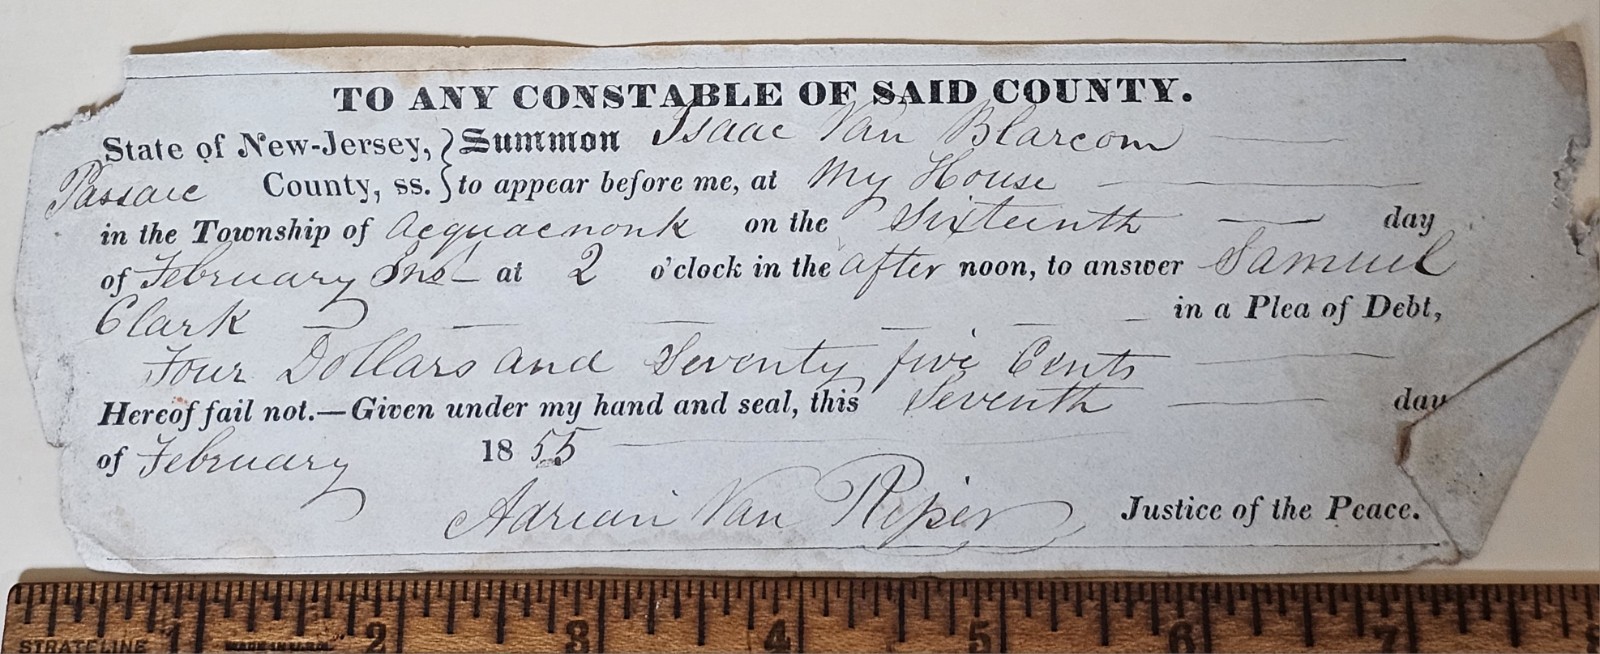 TO ANY CONSTABLE OF SAID COUNTY.
State of New-Jersey, } Summon Isaac Van Blarcom
Passaic County, ss. } to appear before me, at My House
in the Township of Acquacnonk on the Sixteenth day
of February Inst at 2 o'clock in the after noon, to answer Samuel
Clark in a Plea of Debt,
Four Dollars and Seventy five Cents
Hereof fail not.—Given under my hand and seal, this Seventh day
of February 1855
Adrian Van Riper Justice of the Peace.
1 2 3 4 5 6 7 8
STRATELINE MADE IN U.S.A.